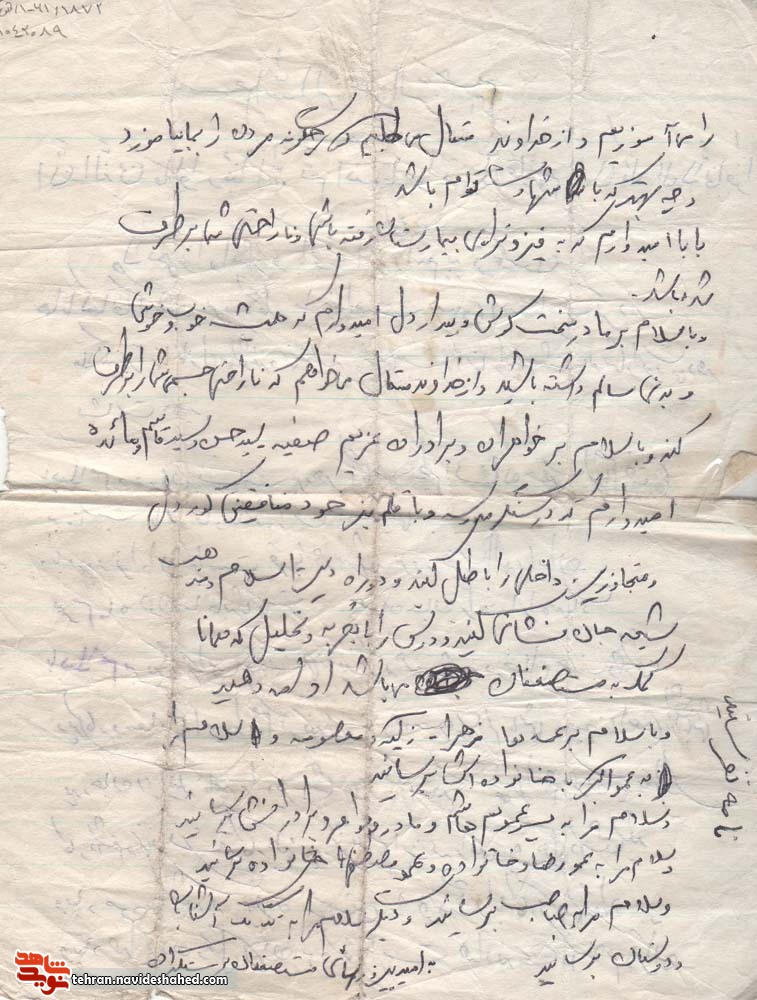 را می‌آموزیم و از خداوند متعال می‌طلبیم که چگونه مردن را بما بیاموزد
و چه بهتر که با شهادت توام باشد
بابا امیدوارم که به فیزوتراپی بیمارستان رفته باشی و ناراحتی شما برطرف
شده باشد.
و با سلام بر مادر سخت کوش و بیدار دل امیدوارم که همیشه خوب و خوشی
و بدنی سالم داشته باشید و از خداوند متعال میخواهم که ناراحتی جسمی شما را برطرف
کند و با سلام بر خواهران و برادران عزیزم صفیه سید حسن و سید قاسم و مائده
امیدوارم که در سنگر مدرسه و با قلم تیز خود منافقین کور دل
و متجاوزین داخلی را باطل کنید و در راه دین اسلام و مذهب
شیعه جان فشانی کنید و درس را با تجربه و تحلیل که همانا
کمک به مستضعفان می‌باشد ادامه دهید
و با سلام بر همه زهرا زکیه و معصومه و سلام مرا
به عمو با خانواده اش برسانید
و سلام مرا به پسر عمویم هاشم و مادر و خواهر و برادرانش برسانید
سلام مرا به عمو رضا و خانواده و عمو مصطفی با خانواده برسانید
و سلام مرا به برسانید و دیگر سلام مرا به تک تک آشنایان
و دوستان برسانید به امید پیروزی نهائی مستضعفان بر مستکبران
شاهد
نوید
tehran.navideshahed.com